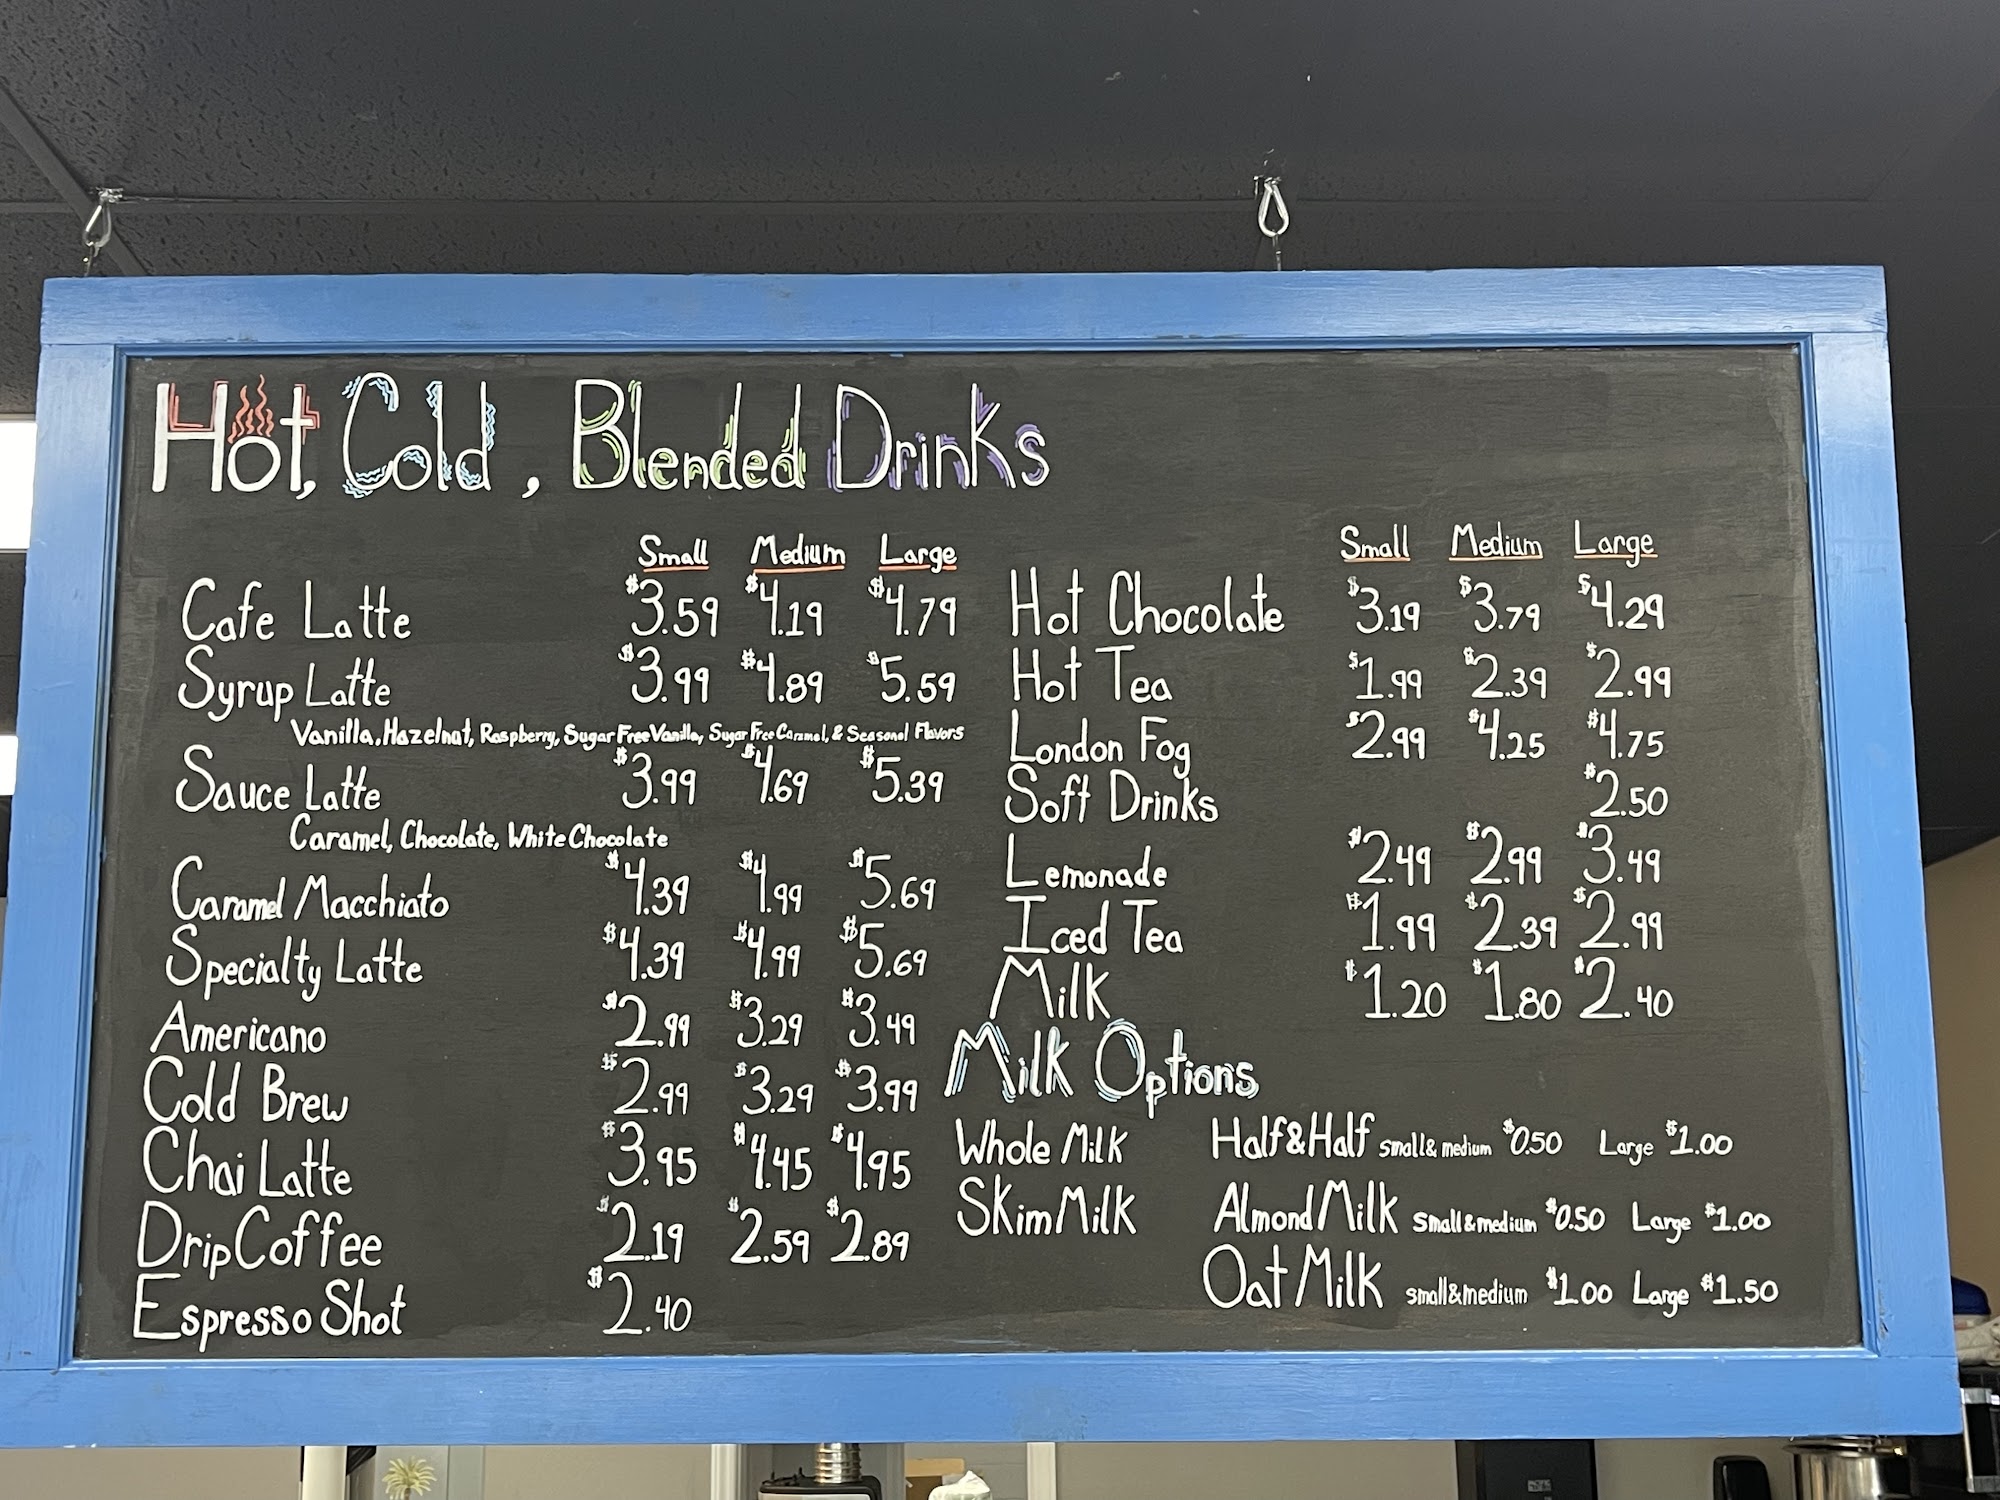 Hot, Cold, Blended Drinks
Small Medium Large
Cafe Latte $3.59 $4.19 $4.79
Syrup Latte $3.99 $4.89 $5.59
Vanilla, Hazelnut, Raspberry, Sugar Free Vanilla, Sugar Free Caramel, & Seasonal Flavors
Sauce Latte $3.99 $4.69 $5.39
Caramel, Chocolate, White Chocolate
Caramel Macchiato $4.39 $4.99 $5.69
Specialty Latte $4.39 $4.99 $5.69
Americano $2.99 $3.29 $3.49
Cold Brew $2.99 $3.29 $3.99
Chai Latte $3.95 $4.45 $4.95
Drip Coffee $2.19 $2.59 $2.89
Espresso Shot $2.40
Small Medium Large
Hot Chocolate $3.19 $3.79 $4.29
Hot Tea $1.99 $2.39 $2.99
London Fog $2.99 $4.25 $4.75
Soft Drinks $2.50
Lemonade $2.49 $2.99 $3.49
Iced Tea $1.99 $2.39 $2.99
Milk $1.20 $1.80 $2.40
Milk Options
Whole Milk
Skim Milk
Half & Half small & medium $0.50 Large $1.00
Almond Milk small & medium $0.50 Large $1.00
Oat Milk small & medium $1.00 Large $1.50